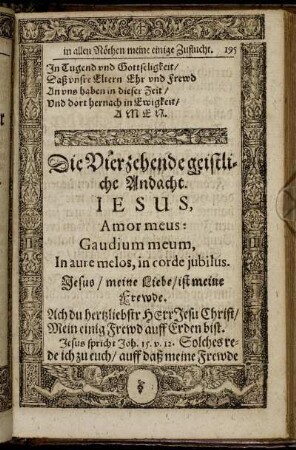 in allen Nöthen meine einige Zuflucht. 195
In Tugend vnd Gottseligkeit/
Daß vnsre Eltern Ehr vnd Frewd
An vns haben in dieser Zeit/
Vnd dort hernach in Ewigkeit/
A M E N.
Die Vierzehende geistli-
che Andacht.
IESUS,
Amor meus:
Gaudium meum,
In aure melos, in corde jubilus.
Jesus/ meine Liebe/ ist meine
Frewde.
Ach du hertzliebstr HErr Jesu Christ/
Mein einig Frewd auff Erden bist.
Jesus spricht Joh. 15. v. 12. Solches re-
de ich zu euch/ auff daß meine Frewde